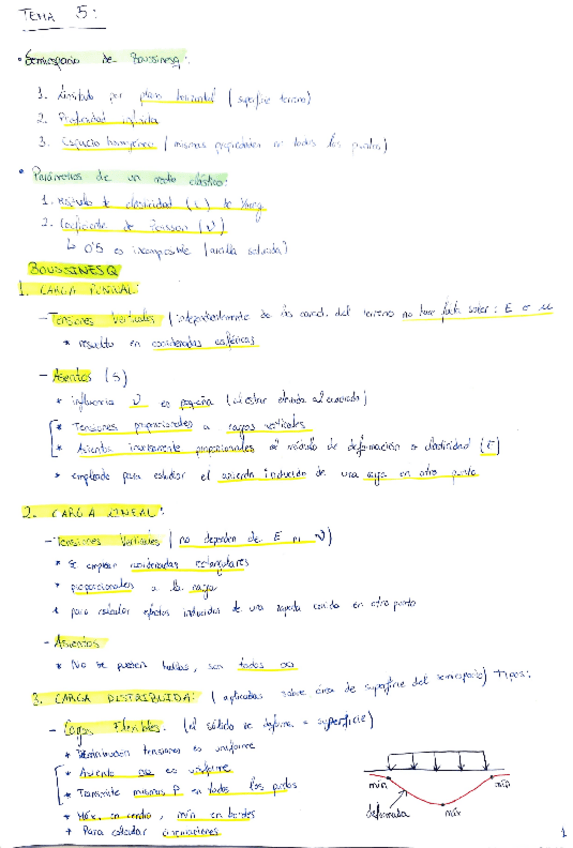 TEMA 5:
• Semiespacio de Boussinesq:
1. Limitado por plano horizontal (superficie terreno)
2. Profundidad infinita
3. Espacio homogéneo (mismas propiedades en todos los puntos)
• Parámetros de un medio elástico:
1. Módulo de elasticidad (E) de Young
2. Coeficiente de Poisson (ν)
↳ 0'5 es incompresible (arcilla saturada)
BOUSSINESQ
1. CARGA PUNTUAL:
- Tensiones Verticales (independientemente de las cond. del terreno no hace falta saber: E o μ
* resuelto en coordenadas esféricas
- Asientos (S)
* influencia ν es pequeña (al estar elevada al cuadrado)
* Tensiones proporcionales a cargas verticales
* Asientos inversamente proporcionales al módulo de deformación o elasticidad (E)
* empleado para estudiar el asiento inducido de una carga en otro punto
2. CARGA LINEAL:
- Tensiones Verticales (no dependen de E ni ν)
* Se emplean coordenadas rectangulares
* proporcionales a la carga
* para calcular efectos inducidos de una zapata corrida en otro punto
- Asientos
* No se pueden hallar, son todos ∞
3. CARGA DISTRIBUIDA: (aplicadas sobre área de superficie del semiespacio) TIPOS:
- Cargas Flexibles. (el sólido se deforma = superficie)
* Distribución tensiones es uniforme
* Asiento no es uniforme
* Transmite mismas P en todos los puntos
* Máx. en centro, mín en bordes
* Para calcular cimentaciones
mín mín
deformada máx
1